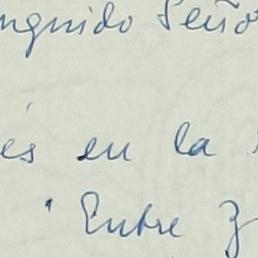 nguido Seño
es en la
"Entre